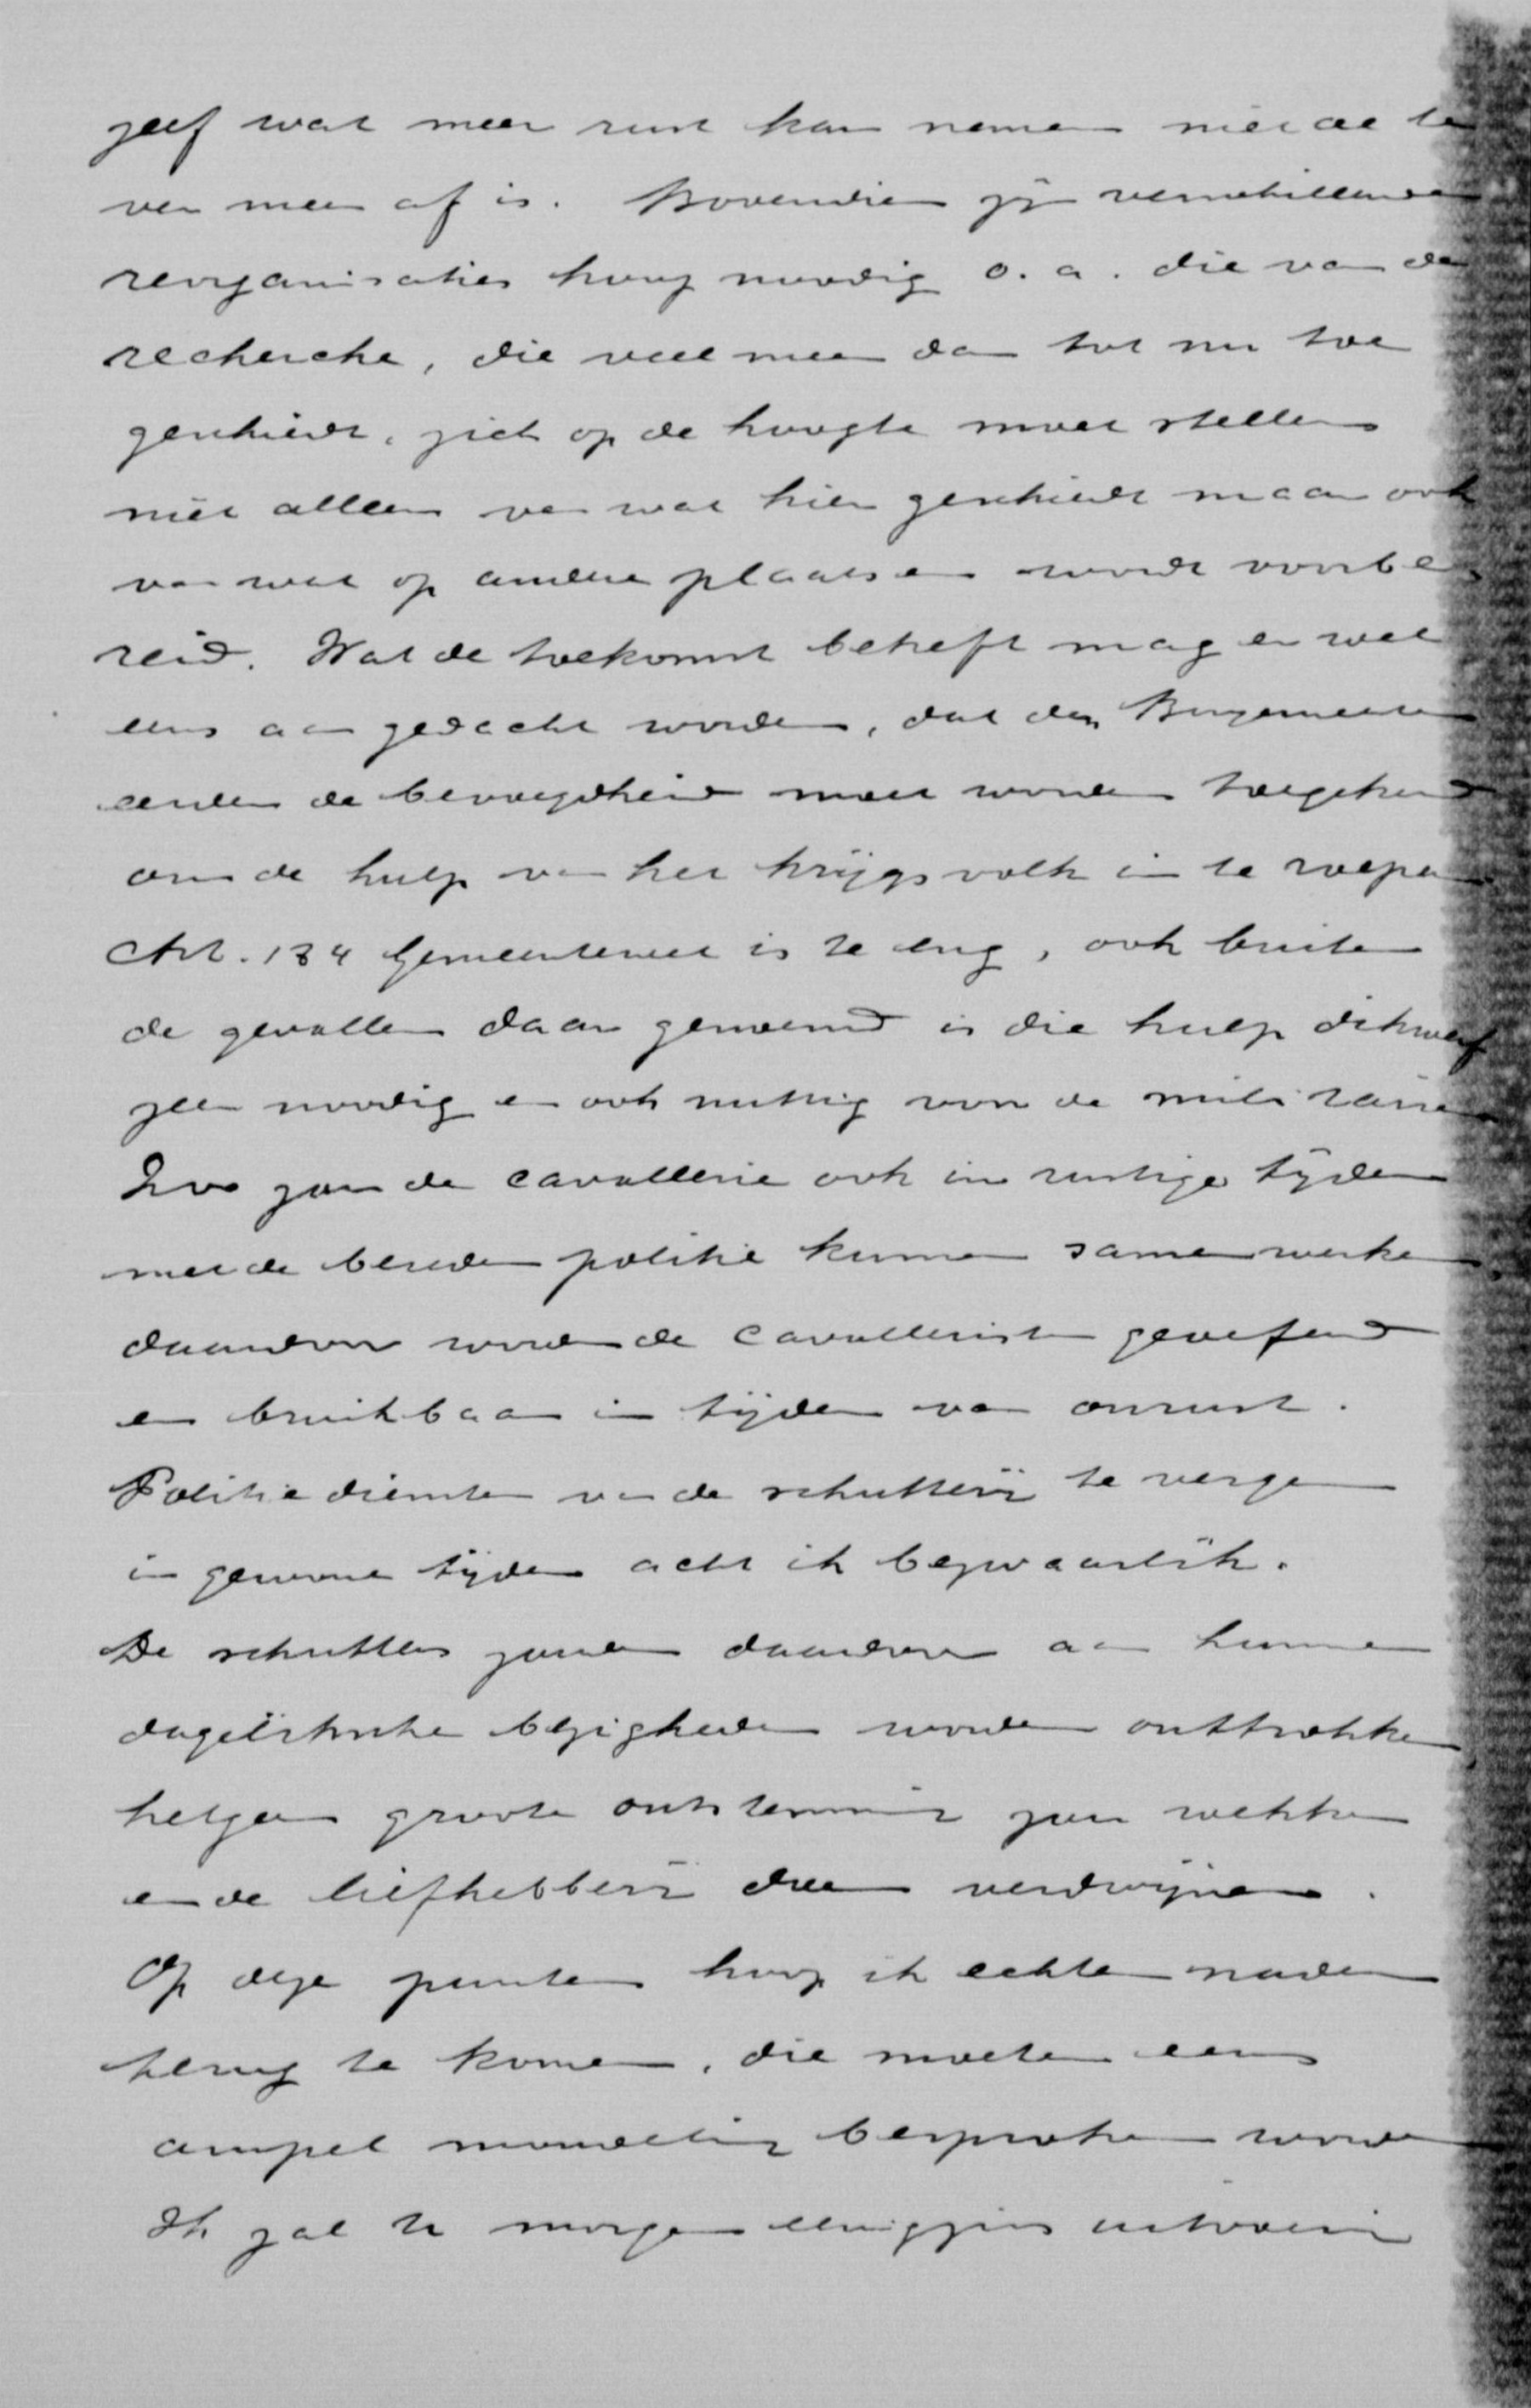 zelf wat meer rust kan nemen nu de
ver meer af is. Bovendien zijn verschillende
reorganisaties hoog noodig o. a. die van de
recherche, die veel meer dan tot nu toe
geschiedt, zich op de hoogte moet stellen
niet alleen van wat hier geschiedt maar ook
van wat op andere plaatsen wordt voorbe
reid. Wat de toekomst betreft mag er wel
eens aan gedacht worden, dat den Burgemeester
eerder de bevoegdheid moet worden toegekend
om de hulp van het krijgsvolk in te roepen
Art. 184 Gemeentewet is te eng, ook buiten
de gevallen daar genoemd is die hulp dikwerf
zeer noodig en ook nuttig voor de militairen
Zoo zou de cavallerie ook in rustige tijden
met de bereden politie kunnen samenwerken,
daardoor worden de cavalleristen geoefend
en bruikbaar in tijden van onrust.
Politiediensten van de schutterij te vergen
in gewone tijden acht ik bezwaarlijk.
De schutters zouden daardoor aan hunne
dagelijksche bezigheden worden onttrokken,
hetgeen groote ontstemming zou wekken
en de liefhebberij doen verdwijnen.
Op deze punten hoop ik echter nader
terug te komen, die moeten eens
ampel mondeling besproken worden
Ik zal U morgen eenigzins uitvoerig